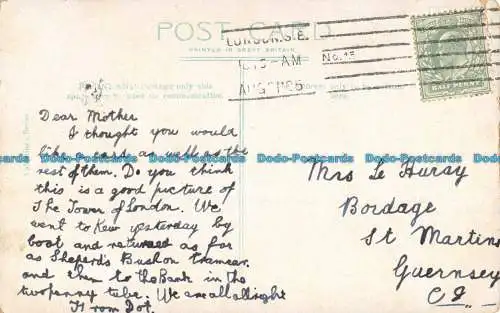 POST CARD
PRINTED IN GREAT BRITAIN.
LONDON. S.E.
AM
AUG
HALF PENNY
only this
Dear Mother
I thought you would
like a card as well as the
rest of them. Do you think
this is a good picture of
The Tower of London. We
went to Kew yesterday by
boat and returned as far
as Sheperd's Bush on tramcar
and then to the Bank in the
twopenny tube. We are all alright
From Dot.
Mrs Le Huray
Bordage
St Martins
Guernsey
C I
Dodo-Postcards Dodo-Postcards Dodo-Postcards Dodo-Postcards